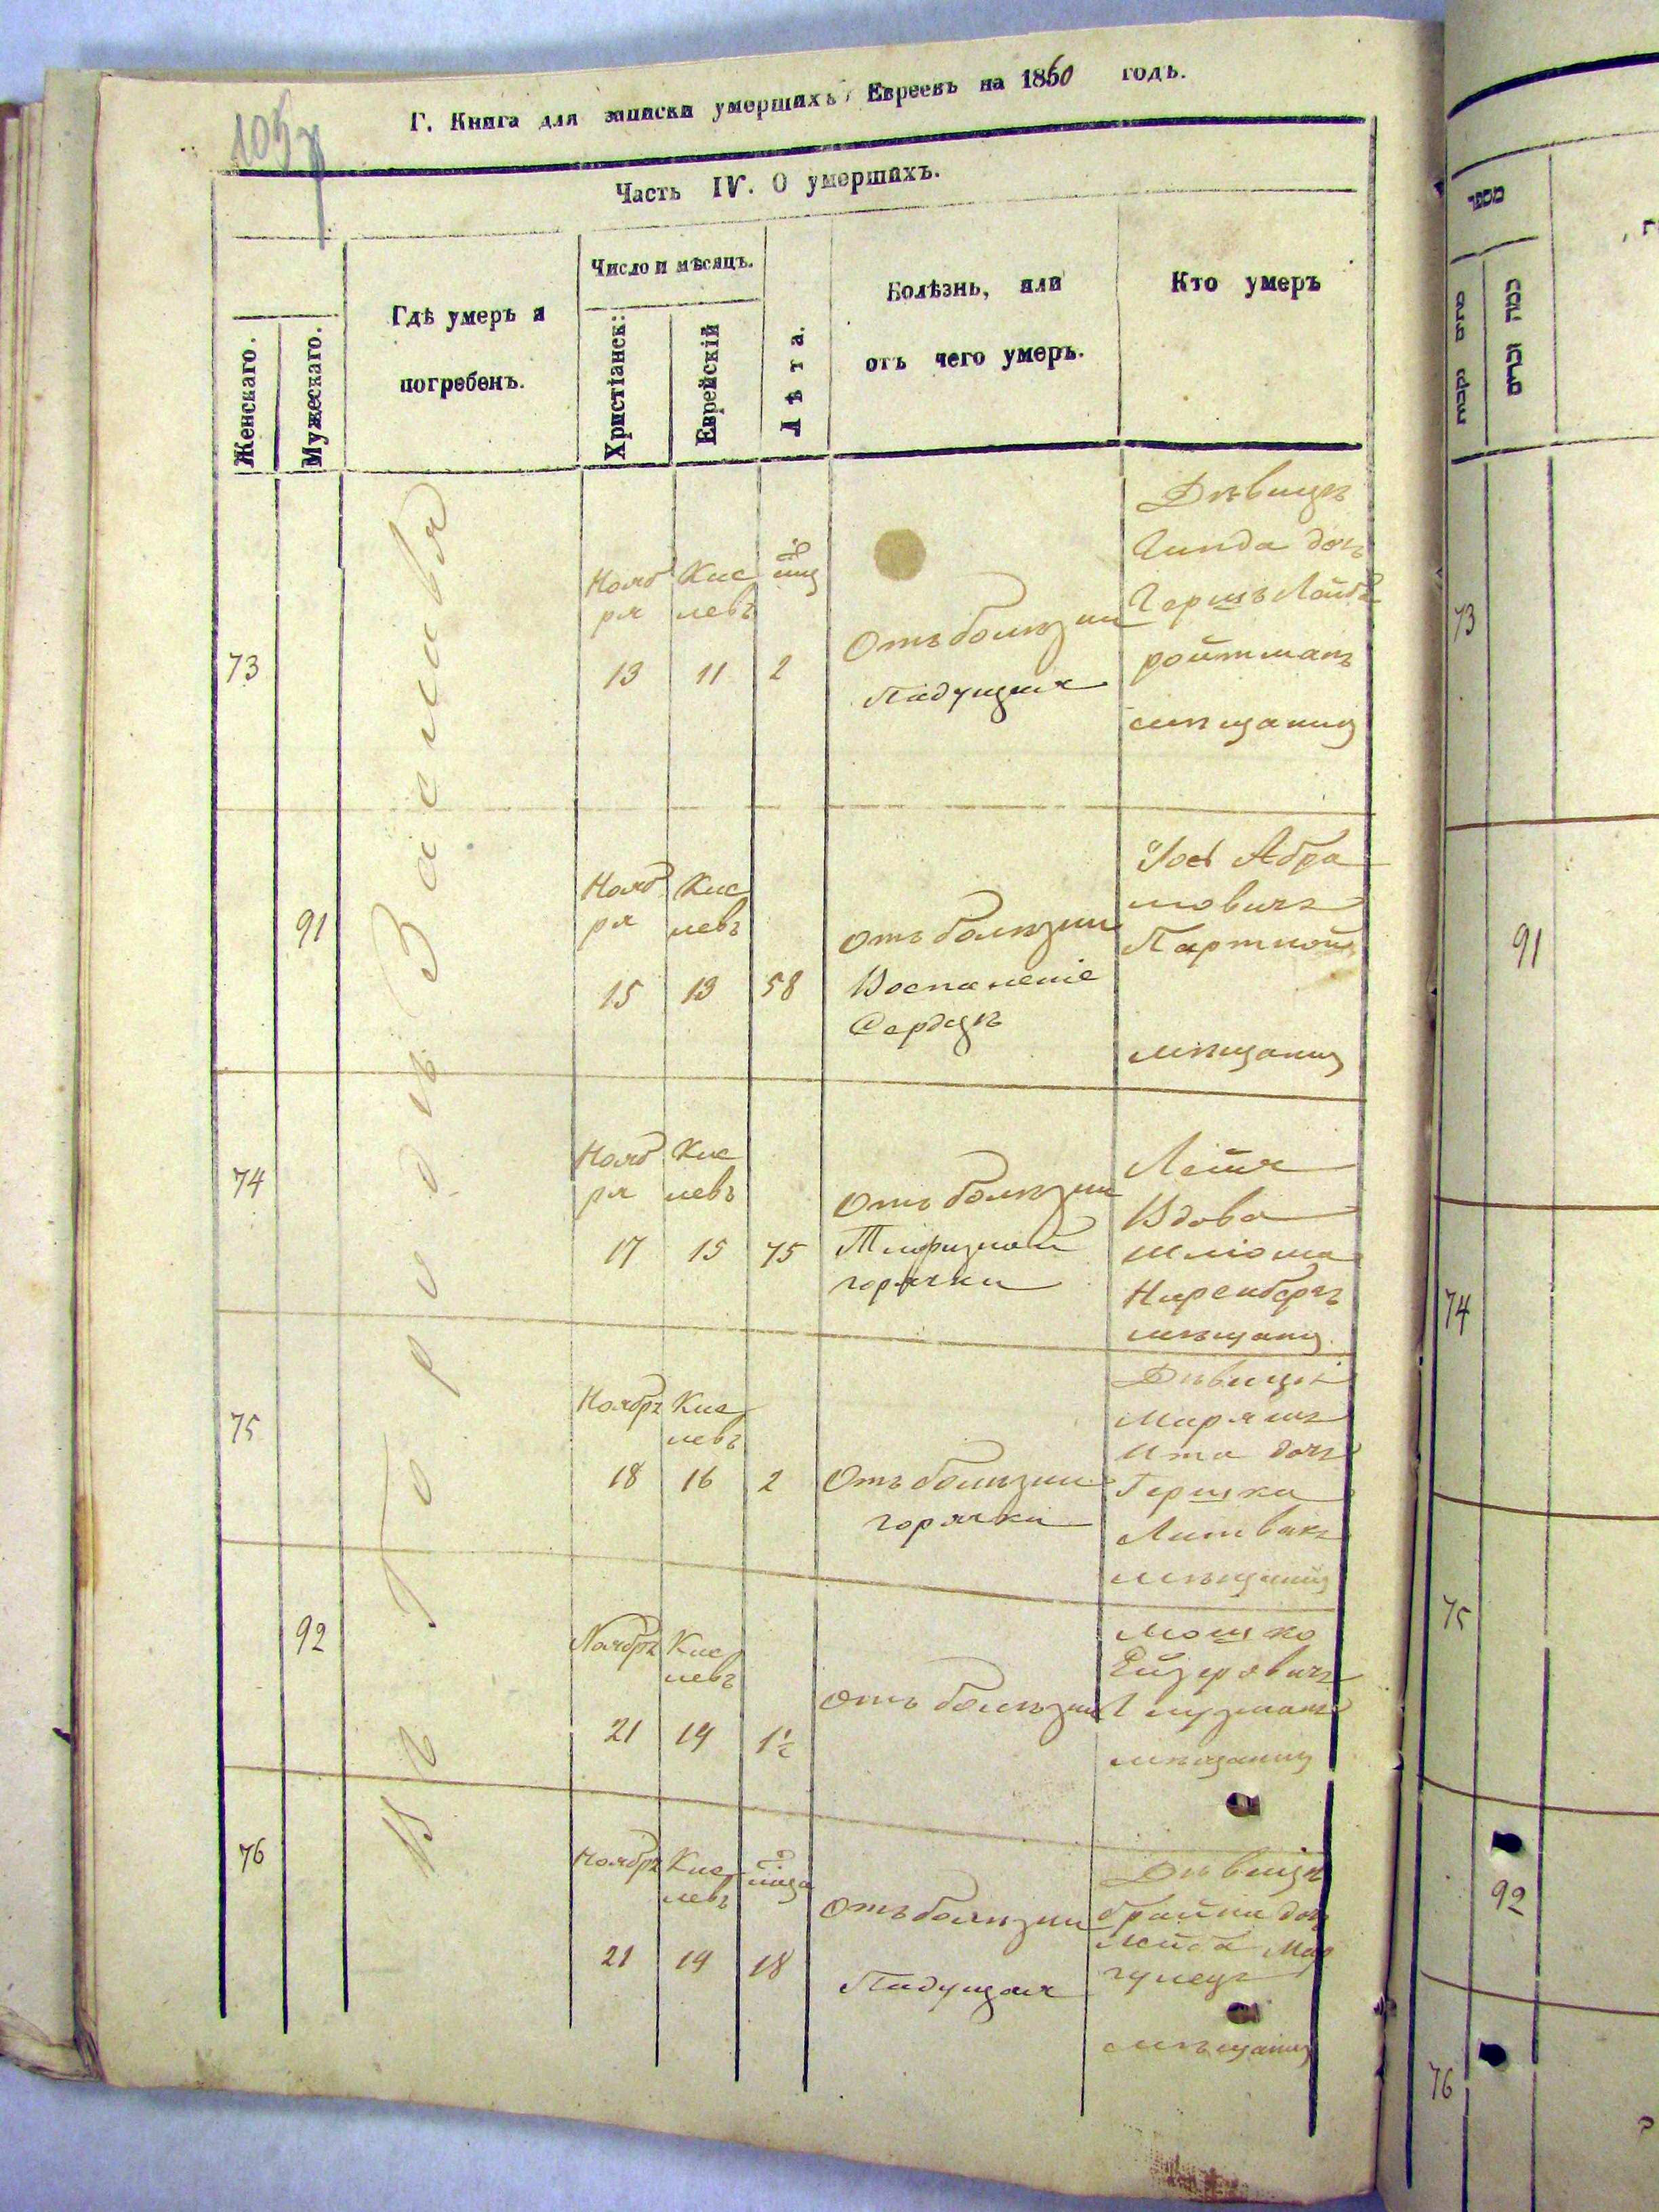 105
Г. Книга для записки умершихъ Евреевъ на 1860 годъ.
Часть IV. О умершихъ.
Женскаго.
Мужескаго.
Гдѣ умеръ и
погребенъ.
Число и мѣсяцъ.
Христіанск:
Еврейскій
Лѣта.
Болѣзнь, или
отъ чего умеръ.
Кто умеръ
Въ Городѣ Заславѣ
73
Нояб
ря
13
Кис
левъ
11
2
Отъ болѣзни
Падущая
Дѣвица
дочь
Гершъ Лейба
ройтманъ
мѣщанин
91
Нояб
ря
15
Кис
левъ
13
58
Отъ болѣзни
Воспаленіе
Сердцѣ
Іось Абра
мовичъ
Партной
мѣщанин
74
Нояб
ря
17
Кис
левъ
15
75
Отъ болѣзни
горячки
Вдова
Шліома
Ниренберъ
мѣщанин
75
Ноябрь
18
Кис
левъ
16
2
Отъ болѣзни
горячки
Дѣвица
Ита дочь
Гершка
Литвакъ
мѣщанин
92
Ноябрь
21
Кис
левъ
19
1½
Отъ болѣзни
Мошко
мѣщанин
76
Ноябрь
21
Кис
левъ
19
18
Отъ болѣзни
Падущая
Дѣвица
брайна дочь
Лейба Мар
гулецъ
мѣщанин
מספר
כמה זכרים
73
91
74
75
92
76